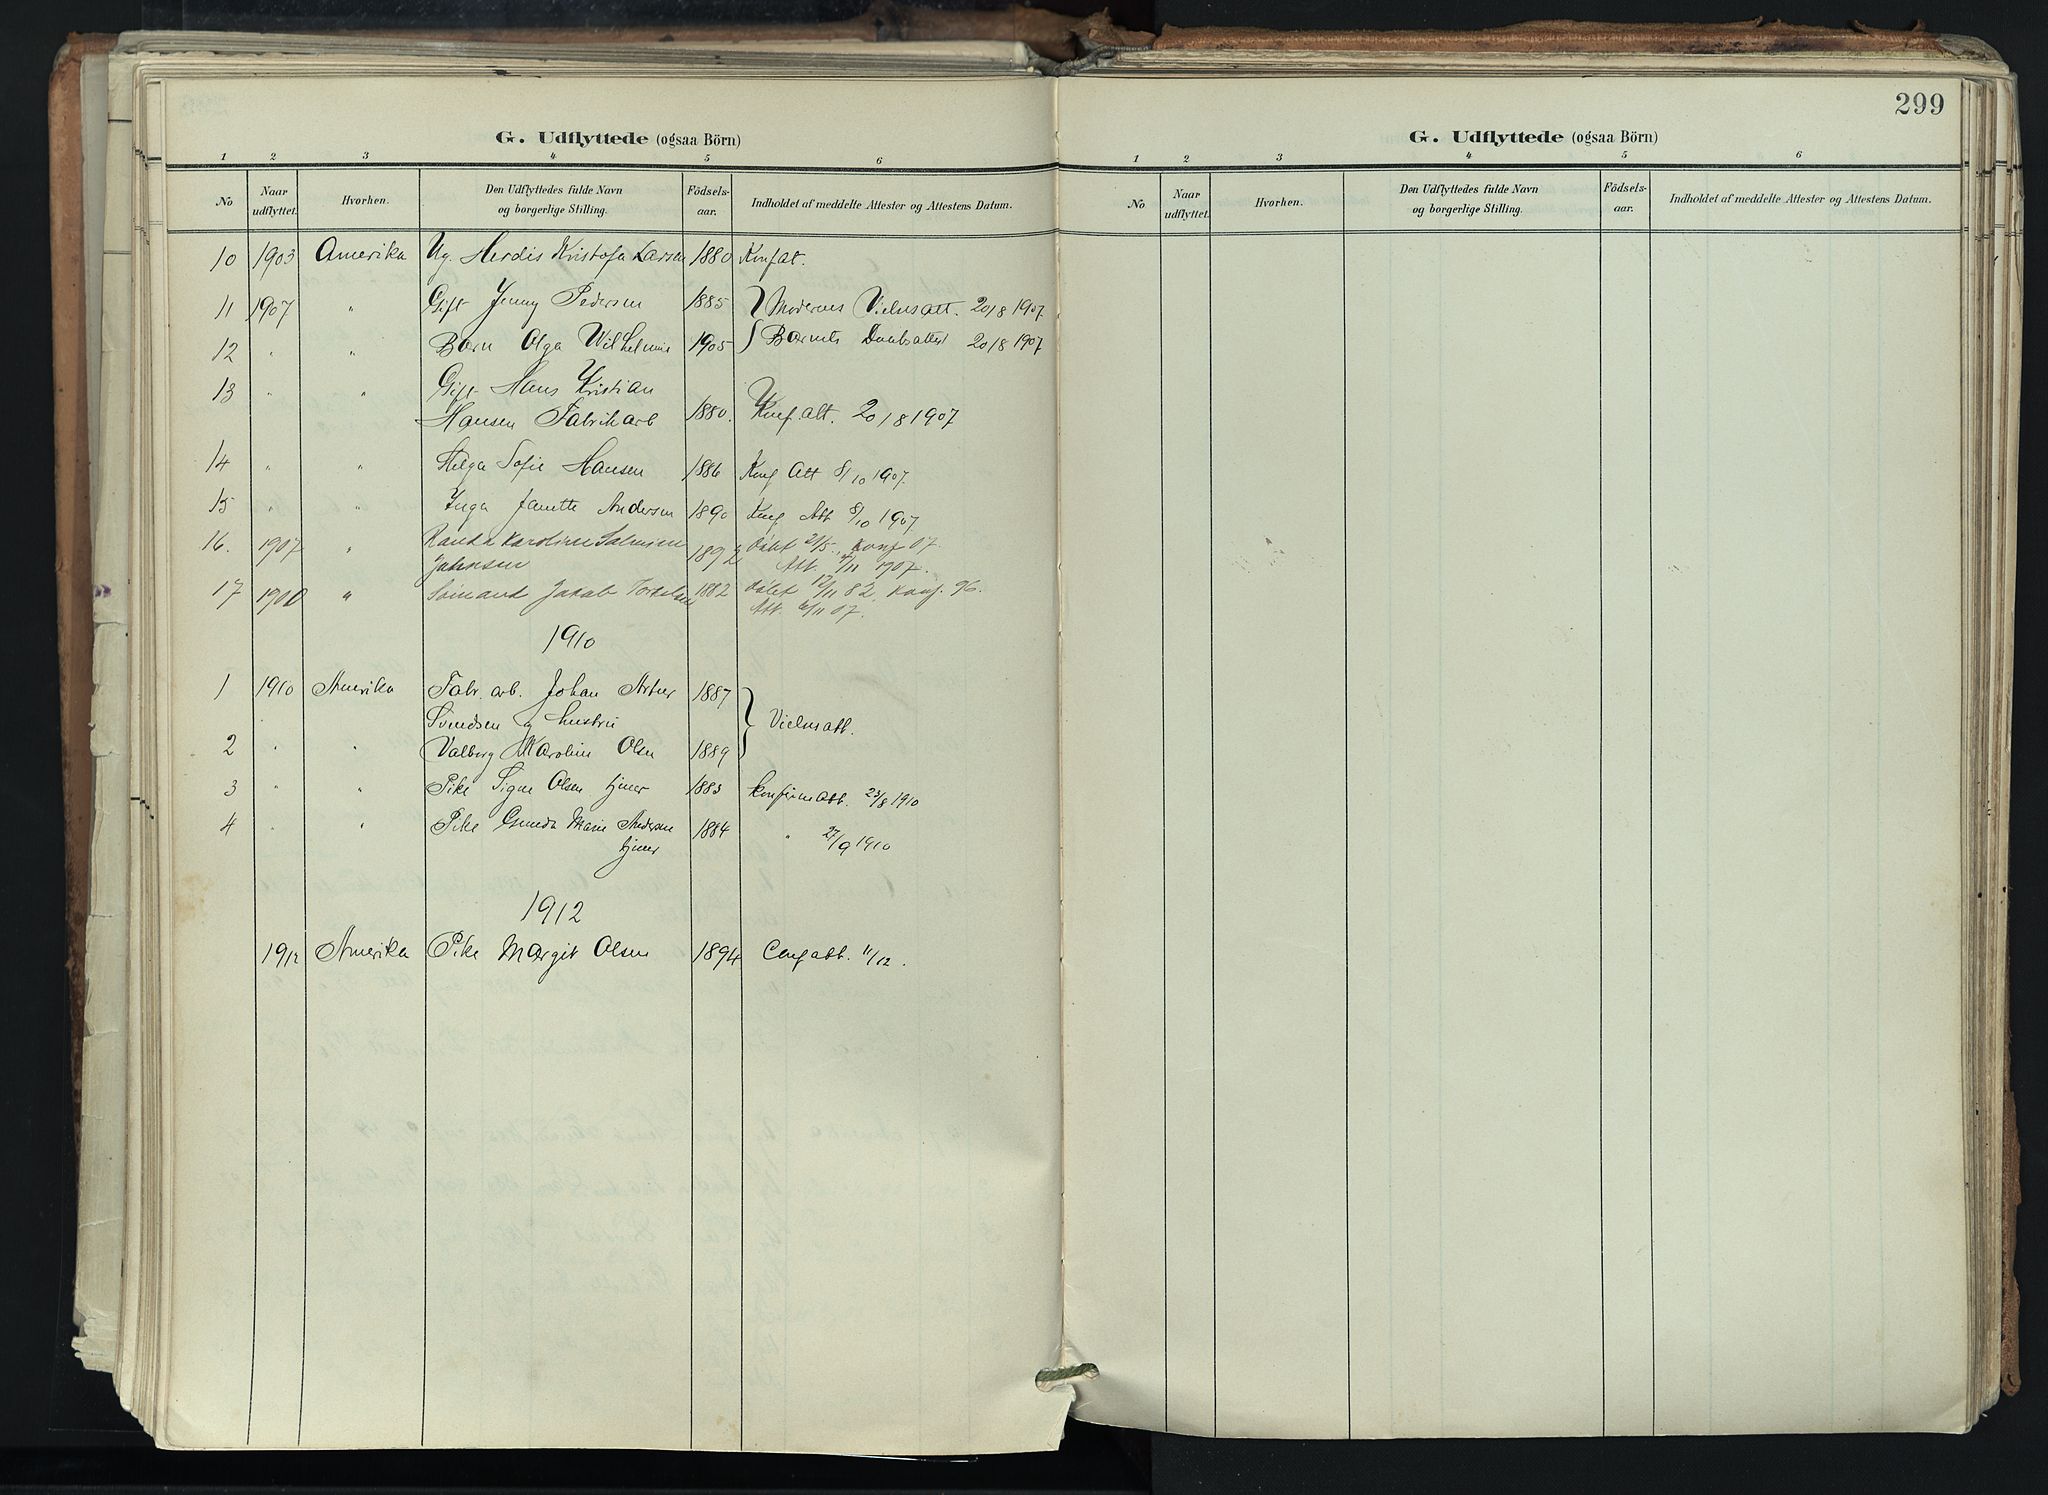 G. Udflyttede (ogsaa Börn)
1 2 3 4 5 6
No Naar udflyttet. Hvorhen. Den Udflyttedes fulde Navn og borgerlige Stilling. Födsels-aar. Indholdet af meddelte Attester og Attestens Datum.
10 1903 Amerika Ug. Herdis Kristofa Larsen 1880 Konfat.
11 1907 " Gift Jenny Pedersen 1885 Moderens Vielsesatt. 20/8 1907
12 " " Barn Olga Wilhelmine 1905 Barnets Daabsattest 20/8 1907
13 " " Gift Hans Kristian
Hansen Fabrikarb 1880. Konf. att. 20/8 1907
14 " " Helga Sofie Hansen 1886 Konf Att 8/10 1907.
15 " " Inga Janette Andersen 1890 Konf Att 8/10 1907
16. 1907 " Karoline 1892 Døbt 21/5, Konf 07.
Johnsen Att. /11 1907.
17 " Jakob 1882 Døbt 12/11 82, Konf. 96.
Att. 6/11 07.
1910
1 1910 Amerika Fabr. arb. Johan 1887
Svendsen og hustru Vielsesatt.
2 " " Valborg Karoline Olsen 1889
3 " " Pike Signe Olsen tjener 1883 Konfirm att. 23/8 1910
4 " " Pike Gunda Marie Andersen 1884 " 27/9 1910
tjener
1912
1912 Amerika Pike Margit Olsen 1894 Conf att. 11/12.
299
G. Udflyttede (ogsaa Börn)
1 2 3 4 5 6
No Naar udflyttet. Hvorhen. Den Udflyttedes fulde Navn og borgerlige Stilling. Födsels-aar. Indholdet af meddelte Attester og Attestens Datum.